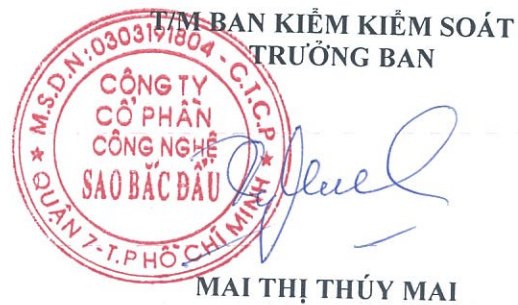 T/M BAN KIỂM KIỂM SOÁT
TRƯỞNG BAN
M.S.D.N:0303191804 - C.T.C.P
CÔNG TY
CỔ PHẦN
CÔNG NGHỆ
SAO BẮC ĐẨU
★ QUẬN 7-T.P HỒ CHÍ MINH ★
MAI THỊ THÚY MAI